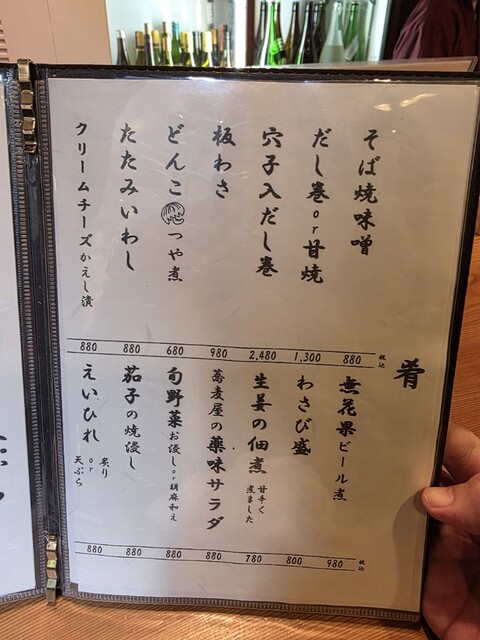 肴
そば焼味噌
だし巻or甘焼
穴子入だし巻
板わさ
どんこ つや煮
たたみいわし
クリームチーズかえし漬
880 880 680 980 2,480 1,300 880 税込
無花果ビール煮
わさび盛
生姜の佃煮 甘辛く煮ました
蕎麦屋の薬味サラダ
旬野菜お浸しor胡麻和え
茄子の焼浸し
えいひれ 炙りor天ぷら
880 880 880 880 780 800 980 税込